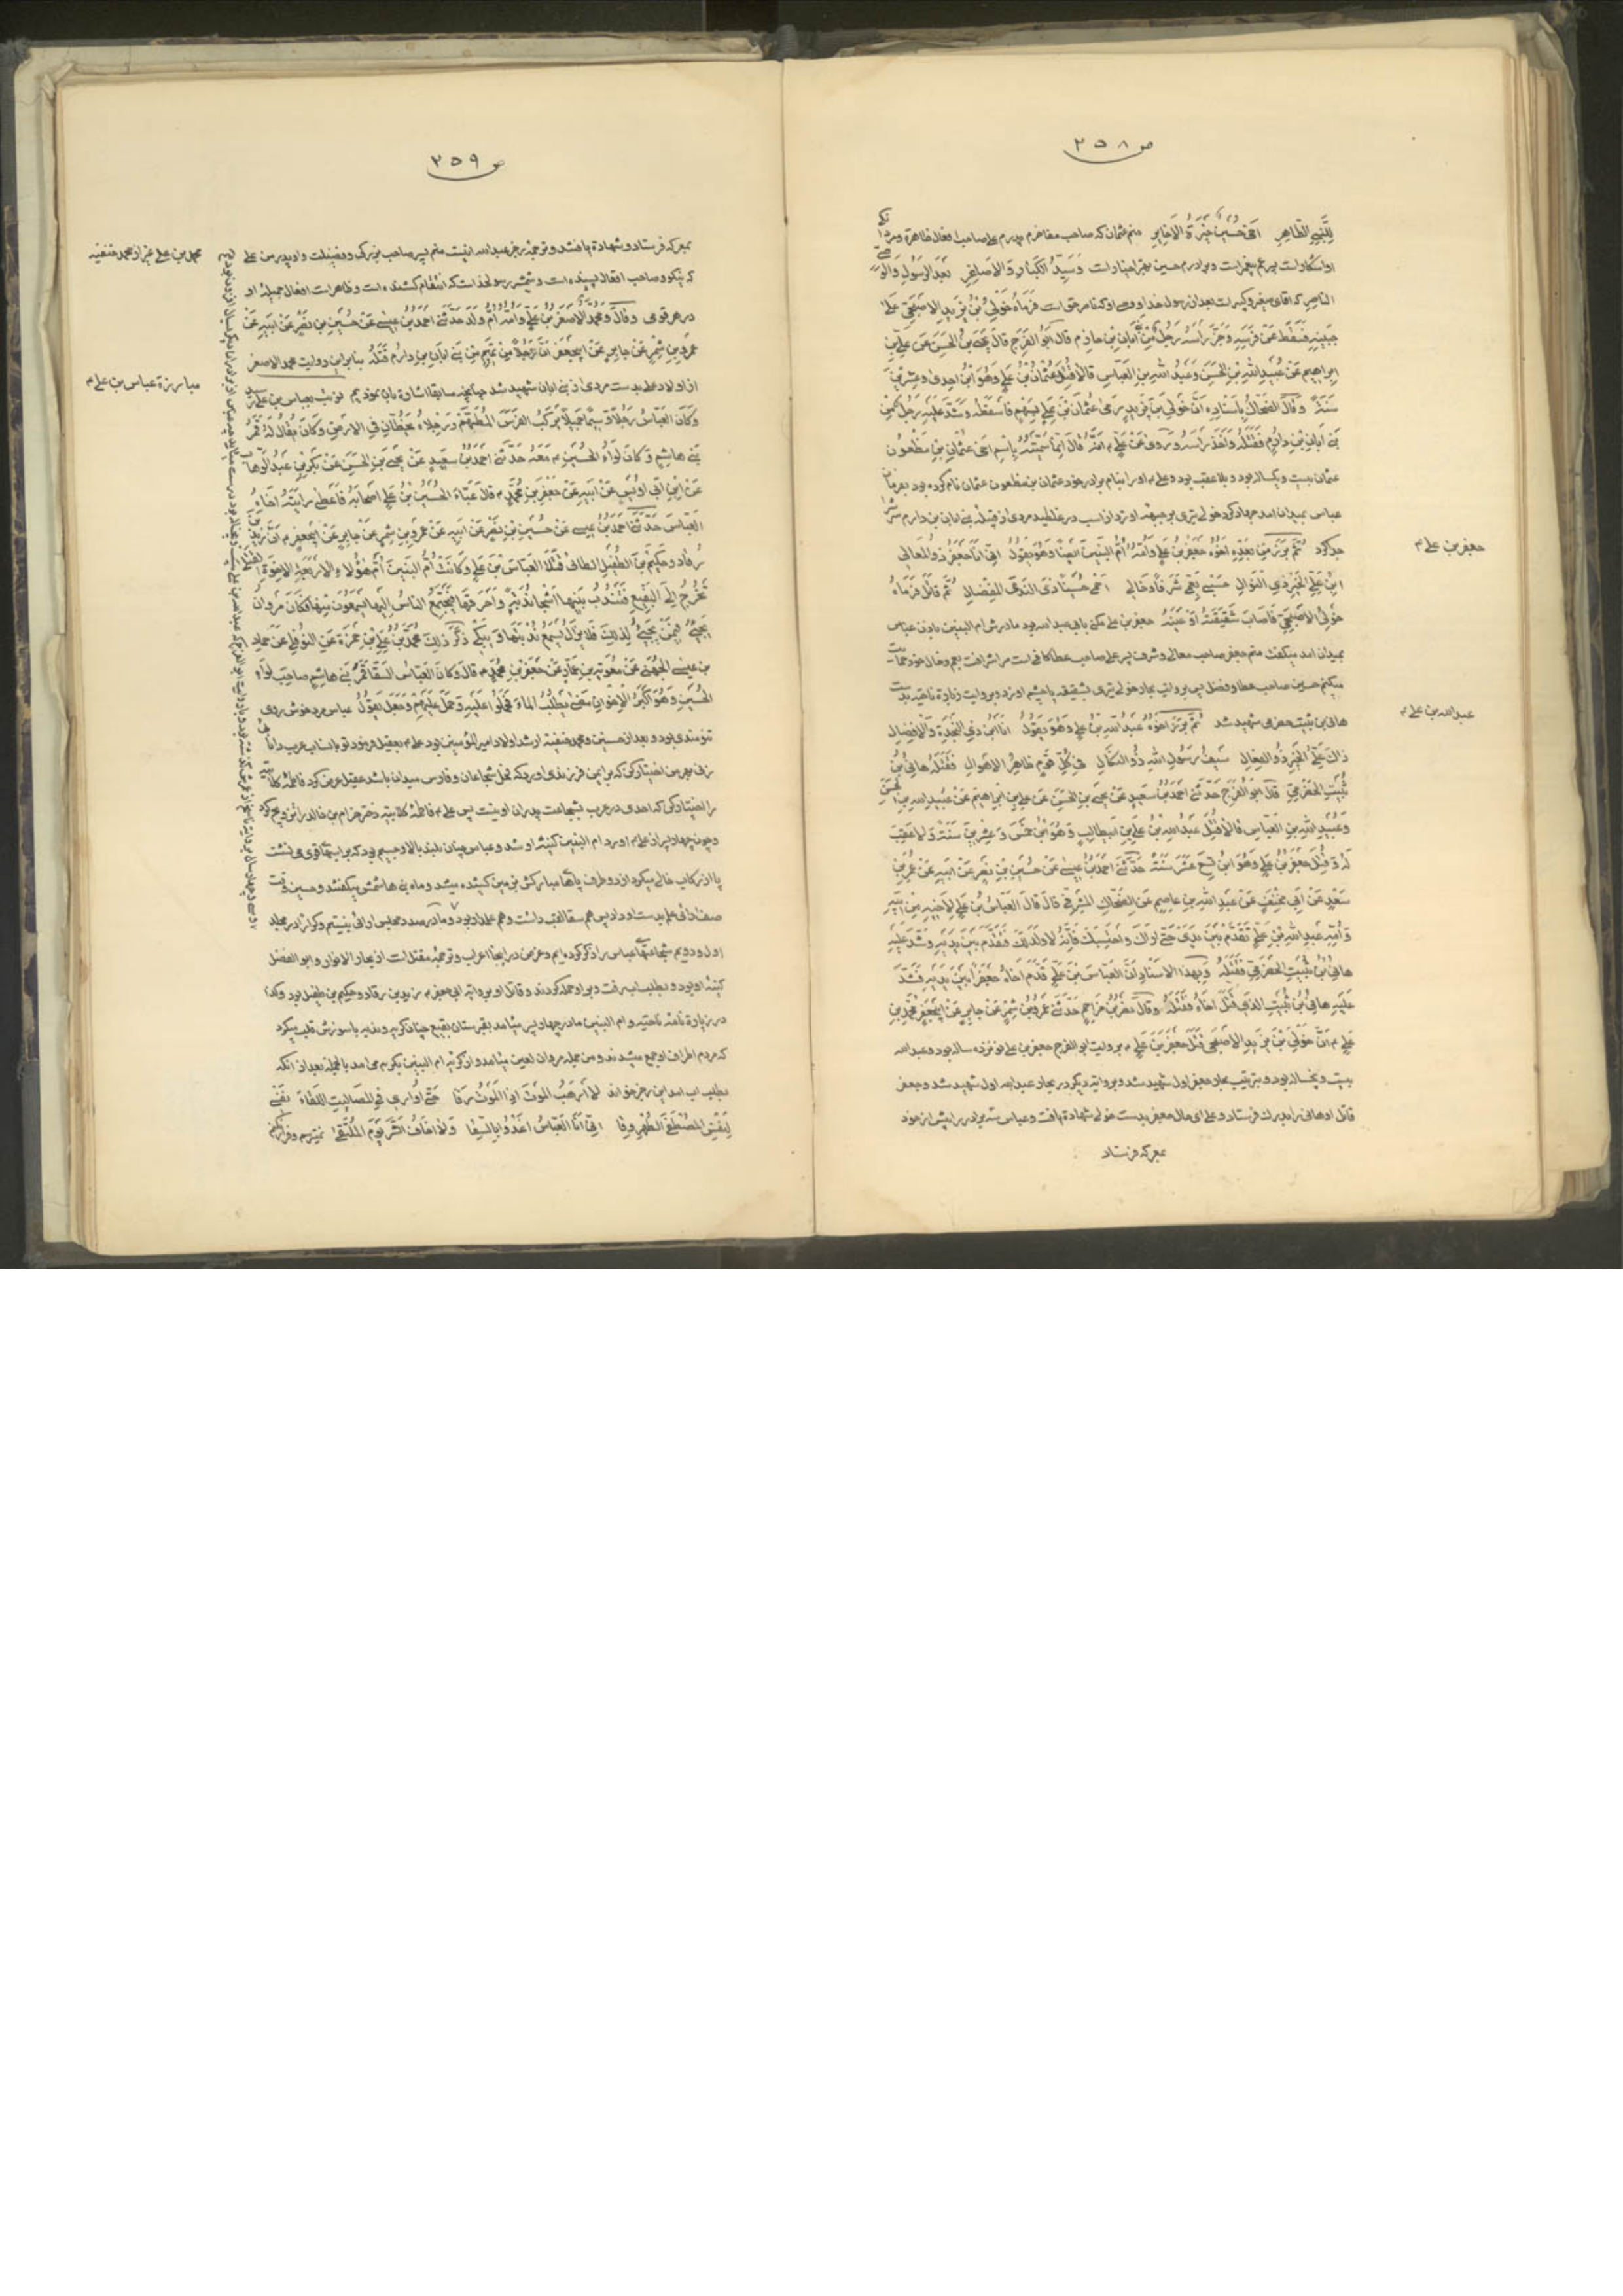 ص ٢٥٨
لِلنَّبِیِّ الطَّاهِرِ اخی حُسَیْنٌ خِیَرَةُ الاَخایِرِ منم عثمان که صاحب مفاخرم پدرم علی صاحب افعال ظاهرة و
است وبرادرم حسین است وَسَیِّدُ الکِبارِ وَالاَصاغِرِ بَعْدَ الرَّسُولِ
الناصِرِ که اقای صغیر وکبیر است بعد از رسول خدا و وصی او که ناصر حق است فَرَماهُ خَوْلِیُّ بْنُ یَزیدَ الاَصْبَحِیُّ عَلی
جَبینِهِ فَسَقَطَ عَنْ فَرَسِهِ وَجَزَّ رَأسَهُ رَجُلٌ مِنْ اَبانِ بْنِ حازِم قالَ اَبُو الفَرَج قالَ یَحْیَی بْنُ الحَسَنِ عَنْ عَلِیِّ بْنِ
اِبراهیمَ عَنْ عُبَیْدِ اللهِ بْنِ الحَسَنِ وَعَبْدِ اللهِ بْنِ العَبّاسِ قالا قُتِلَ عُثْمانُ بْنُ عَلِیٍّ وَهُوَ ابْنُ اِحدی وَعِشْرینَ
سَنَةً وَقالَ الضَّحّاكُ بِاِسْنادِهِ اَنَّ خَوْلِیَّ بْنَ یَزیدَ رَمی عُثمانَ بْنَ عَلِیٍّ بِسَهْمٍ فَاَسْقَطَهُ وَشَدَّ عَلَیْهِ رَجُلٌ مِنْ
بَنی اَبانِ بْنِ دارِمٍ فَقَتَلَهُ وَاَخَذَ رَاْسَهُ وَرُوِیَ عَنْ عَلِیٍّ م اَنَّهُ قالَ اِنَّما سَمَّیْتُهُ بِاسْمِ اَخی عُثْمانِ بْنِ مَظْعُون
عثمان بیست ویکساله بود وبلا عقب بود وعلی م او را بنام برادر خود عثمان بن مظعون عثمان نام کرده بود بفرمان
عباس بمیدان امد جهاد کرد خولی تیری بر جبهه او زد از اسب در غلطید مردی از قبیله بنی ابان بن دارم سرش
جدا کرد ثُمَّ بَرَزَ مِنْ بَعْدِهِ اَخُوهُ جَعْفَرُ بْنُ عَلِیٍّ وَاُمُّهُ اُمُّ البَنینَ اَیْضًا وَهُوَ یَقُولُ اِنّی اَنَا جَعْفَرُ ذُو المَعالی
اِبْنُ عَلِیِّ الخَیْرِ ذِی النَّوالِ حَسْبی بِعَمّی شَرَفًا وَخالی اَحْمی حُسَیْنًا ذِی النَّدَی المِفْضالِ ثُمَّ قاتَلَ فَرَماهُ
خَوْلِیُّ الاَصْبَحِیُّ فَاَصابَ شَقیقَتَهُ اَوْ عَیْنَهُ جعفر بن علی مکنی بابی عبدالله بود مادرش ام البنین باذن عباس
بمیدان امد میگفت منم جعفر صاحب معالی وشرف پسر علی صاحب عطا کافی است مرا شرافت بعم وخال خود حمایت
میکنم حسین صاحب عطا وفضل را پس بروایت بحار خولی تیری بشقیقه یا چشم او زد وبروایت زیارة ناحیه بدست
هانی بن ثبیت حضرمی شهید شد ثُمَّ بَرَزَ اَخُوهُ عَبْدُ اللهِ بْنُ عَلِیٍّ وَهُوَ یَقُولُ اَنَا ابْنُ ذِی النَّجْدَةِ وَالاِفْضالِ
ذاكَ عَلِیُّ الخَیْرِ ذُو الفِعالِ سَیْفُ رَسُولِ اللهِ ذُو النَّکالِ فی کُلِّ قَوْمٍ ظاهِرُ الاَهْوالِ فَقَتَلَهُ هانِیُ بْنُ
ثُبَیْتِ الحَضْرَمِیُّ قالَ ابو الفَرَج حَدَّثَنی احْمَدُ بْنُ سَعیدٍ عَنْ یَحْیَی بْنِ الحَسَنِ عَنْ عَلِیِّ بْنِ اِبْراهیمَ عَنْ عُبَیْدِ اللهِ بْنِ الحَسَنِ
وَعَبْدِ اللهِ بْنِ العَبّاسِ قالا قُتِلَ عَبْدُ اللهِ بْنُ عَلِیِّ بْنِ ابیطالِبٍ وَهُوَ ابْنُ خَمْسٍ وَعِشْرینَ سَنَةً وَلا عَقِبَ
لَهُ وَقُتِلَ جَعْفَرُ بْنُ عَلِیٍّ وَهُوَ ابْنُ تِسْعَ عَشَرَ سَنَةً حَدَّثَنی اَحْمَدُ بْنُ عیسی عَنْ حُسَیْنِ بْنِ نَصْرٍ عَنْ اَبیهِ عَنْ عُمَرَ بْنِ
سَعْدٍ عَنْ اَبی مِخْنَفٍ عَنْ عَبْدِ اللهِ بْنِ عاصِمٍ عَنِ الضَّحّاكِ المَشْرِقی قالَ قالَ العَبّاسُ بْنُ عَلِیٍّ لِاَخیهِ مِنْ اَبیهِ
وَاُمِّهِ عَبْدِ اللهِ بْنِ عَلِیٍّ تَقَدَّمْ بَیْنَ یَدَیَّ حَتّی اَراكَ وَاَحْتَسِبَكَ فَاِنَّهُ لا وَلَدَ لَكَ فَتَقَدَّمَ بَیْنَ یَدَیْهِ وَشَدَّ عَلَیْهِ
هانِیُ بْنُ ثُبَیْتِ الحَضْرَمِیُّ فَقَتَلَهُ وَبِهذَا الاِسْنادِ اَنَّ العَبّاسَ بْنَ عَلِیٍّ قَدَّمَ اَخاهُ جَعْفَرًا بَیْنَ یَدَیْهِ فَشَدَّ
عَلَیْهِ هانِیُ بْنُ ثُبَیْتِ الَّذی قَتَلَ اَخاهُ فَقَتَلَهُ وَقالَ نَصْرُ بْنُ مُزاحِمٍ حَدَّثَنی عَمْرُو بْنُ شِمْرٍ عَنْ جابِرٍ عَنْ اَبیجَعْفَرٍ مُحَمَّدِ بْنِ
عَلِیٍّ م اَنَّ خَوْلِیَّ بْنَ یَزیدَ الاَصْبَحی قَتَلَ جَعْفَرَ بْنَ عَلِیٍّ م بروایت ابو الفرج جعفر بن علی نوزده ساله بود وعبدالله
بیست وپنجساله بود وبترتیب بحار جعفر اول شهید شد وبروایت دیگر در بحار عبدالله اول شهید شد وجعفر
قاتل او هانی را بدرك فرستاد وعلی ای حال جعفر بدست خولی شهادة یافت وعباس سه برادر را پیش از خود
بمعرکه فرستاد
جعفر بن علی م
عبدالله بن علی م
ص ٢٥٩
بمعرکه فرستاد وشهادة یافتند وترجمهٔ رجز عبدالله اینست منم پسر صاحب بزرگی وفضیلت واو پدر من علی
که نیکو وصاحب افعال پسندیده است وشمشیر رسولخداست که انتقام کشنده است وظاهر است افعال جمیلهٔ او
در هر قومی وَقالَ وَمُحَمَّدُ الاَصْغَرُ بْنُ عَلِیٍّ وَاُمُّهُ اُمُّ وَلَدٍ حَدَّثَنی اَحْمَدُ بْنُ عیسی عَنْ حُسَیْنِ بْنِ نَصْرٍ عَنْ اَبیهِ عَنْ
عَمْرِو بْنِ شِمْرٍ عَنْ جابِرٍ عَنْ اَبیجَعْفَرٍ اَنَّ رَجُلًا مِنْ تَمیمٍ مِنْ بَنی اَبانِ بْنِ دارِمٍ قَتَلَهُ بنابراین روایت محمد الاصغر
از اولاد علی بدست مردی از بنی ابان شهید شد چنانچه سابقا اشارة بان نمودیم نوبت بعباس بن علی رسید
وَکانَ العَبّاسُ رَجُلًا وَسیمًا جَمیلًا یَرْکَبُ الفَرَسَ المُطَهَّمَ وَرِجْلاهُ یَخُطّانِ فِی الاَرْضِ وَکانَ یُقالُ لَهُ قَمَرُ
بَنی هاشِمٍ وَکانَ لِواءُ الحُسَیْنِ م مَعَهُ حَدَّثَنی اَحْمَدُ بْنُ سَعیدٍ عَنْ یَحْیَی بْنِ الحَسَنِ عَنْ بَکْرِ بْنِ عَبْدِ الوَهّابِ
عَنْ ابْنِ اَبی اُوَیْسٍ عَنْ اَبیهِ عَنْ جَعْفَرِ بْنِ مُحَمَّدٍ م قالَ عَبَّاَ الحُسَیْنُ بْنُ عَلِیٍّ اَصْحابَهُ فَاَعْطی رایَتَهُ اَخاهُ
العَبّاسَ حَدَّثَنی اَحْمَدُ بْنُ عیسی عَنْ حُسَیْنِ بْنِ نَصْرٍ عَنْ اَبیهِ عَنْ عَمْرِو بْنِ شِمْرٍ عَنْ جابِرٍ عَنْ اَبیجَعْفَرٍ م اَنَّ زَیْدَ بْنَ
رُقادٍ وَحَکیمَ بْنَ الطُّفَیْلِ الطائی قَتَلا العَبّاسَ بْنَ عَلِیٍّ وَکانَتْ اُمُّ البَنینَ اُمُّ هؤُلاءِ الاَرْبَعَةِ الاِخْوَةِ القَتْلی
تَخْرُجُ اِلَی البَقیعِ فَتَنْدُبُ بَنیها اَشْجی نُدْبَةٍ وَاَحْرَقَها فَیَجْتَمِعُ النّاسُ اِلَیْها یَسْمَعُونَ مِنْها فَکانَ مَرْوانُ
یَجیئُ فیمَنْ یَجیئُ لِذلِكَ فَلا یَزالُ یَسْمَعُ نُدْبَتَها وَیَبْکی ذَکَرَ ذلِكَ مُحَمَّدُ بْنُ عَلِیِّ بْنِ حَمْزَةَ عَنِ النَّوْفَلی عَنْ حَمّادِ
بْنِ عیسی الجُهَنی عَنْ مُعویَةَ بْنِ عَمّارٍ عَنْ جَعْفَرِ بْنِ مُحَمَّدٍ م قالَ وَکانَ العَبّاسُ السَّقّا قَمَرَ بَنی هاشِمٍ صاحِبَ لِواءِ
الحُسَیْنِ وَهُوَ اَکْبَرُ الاِخْوانِ مَضی یَطْلُبُ الماءَ فَحَمَلُوا عَلَیْهِ وَحَمَلَ عَلَیْهِمْ وَجَعَلَ یَقُولُ عباس مرد خوش روی
تنومندی بود وبعد از حسنین ومحمد حنفیه ارشد اولاد امیرالمؤمنین بود علی م بعقیل فرمود تو بانساب عرب دانائی
زنی بهر من اختیار کن که برایمن فرزندی اورد که فحل شجاعان وفارس میدان باشد عقیل عرض کرد فاطمهٔ کلابیه
را اختیار کن که احدی در عرب بشجاعت پدران او نیست پس علی م فاطمهٔ کلابیه دختر حزام بن خالد را تزویج کرد
وچون چهار پسر از علی م اورد ام البنین کنیهٔ او شد وعباس چنان بلند بالا وجسیم بود که بر اسبهای قوی می نشست
پا از رکاب خالی میکرد از دو طرف پاهای مبارکش بزمین کشیده میشد وماه بنی هاشمش میگفتند وحسین وقت
صف آرائی علم بدست او داد پس هم سقا لقب داشت وهم علمدار بود وما در صدد مجلس ارائی نیستیم ومکرر در مجلد
اول ودویم شجاعتهای عباس را ذکر کرده ایم وغرض در اینجا اعراب وترجمهٔ مقتل است از بحار الانوار وابو الفضل
کنیهٔ او بود وبطلب اب رفت وبر او حمله کردند وقاتل او بروایت ابی جعفر م زید بن رقاد وحکیم بن طفیل بود وکذا
در زیارة نامهٔ ناحیه وام البنین مادر چهار پسر میامد بقبرستان بقیع چنان گریه وندبه با سوزش قلب میکرد
که مردم اطراف او جمع میشدند ومن جمله مروان لعین میامد واز گریهٔ ام البنین بگریه می امد بالجمله بعد از انکه
بطلب اب امد این رجز خواند لا اَرْهَبُ المَوْتَ اِذَا المَوْتُ رَقا حَتّی اُواری فِی المَصالیتِ اللِّقاءَ نَفْسی
لِنَفْسِ المُصْطَفَی الطُّهْرِ وِقا اِنّی اَنَا العَبّاسُ اَغْدُو بِالسِّقا وَلا اَخافُ الشَّرَّ یَوْمَ المُلْتَقی نمیترسم
محمد بن علی غیر از محمد حنفیه
مبارزة عباس بن علی م